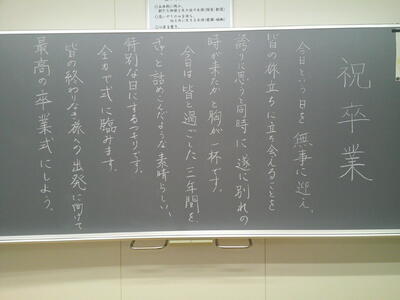 祝卒業
今日という日を無事に迎え、
皆の旅立ちに立ち会えることを
誇りに思うと同時に遂に別れの
時が来たかと胸が一杯です。
今日は皆と過ごした三年間を、
ぎゅっと詰めこんだような素晴らしい、
特別な日にするつもりです。
全力で式に臨みます。
皆の終わりなき旅への出発に向けて
最高の卒業式にしよう。